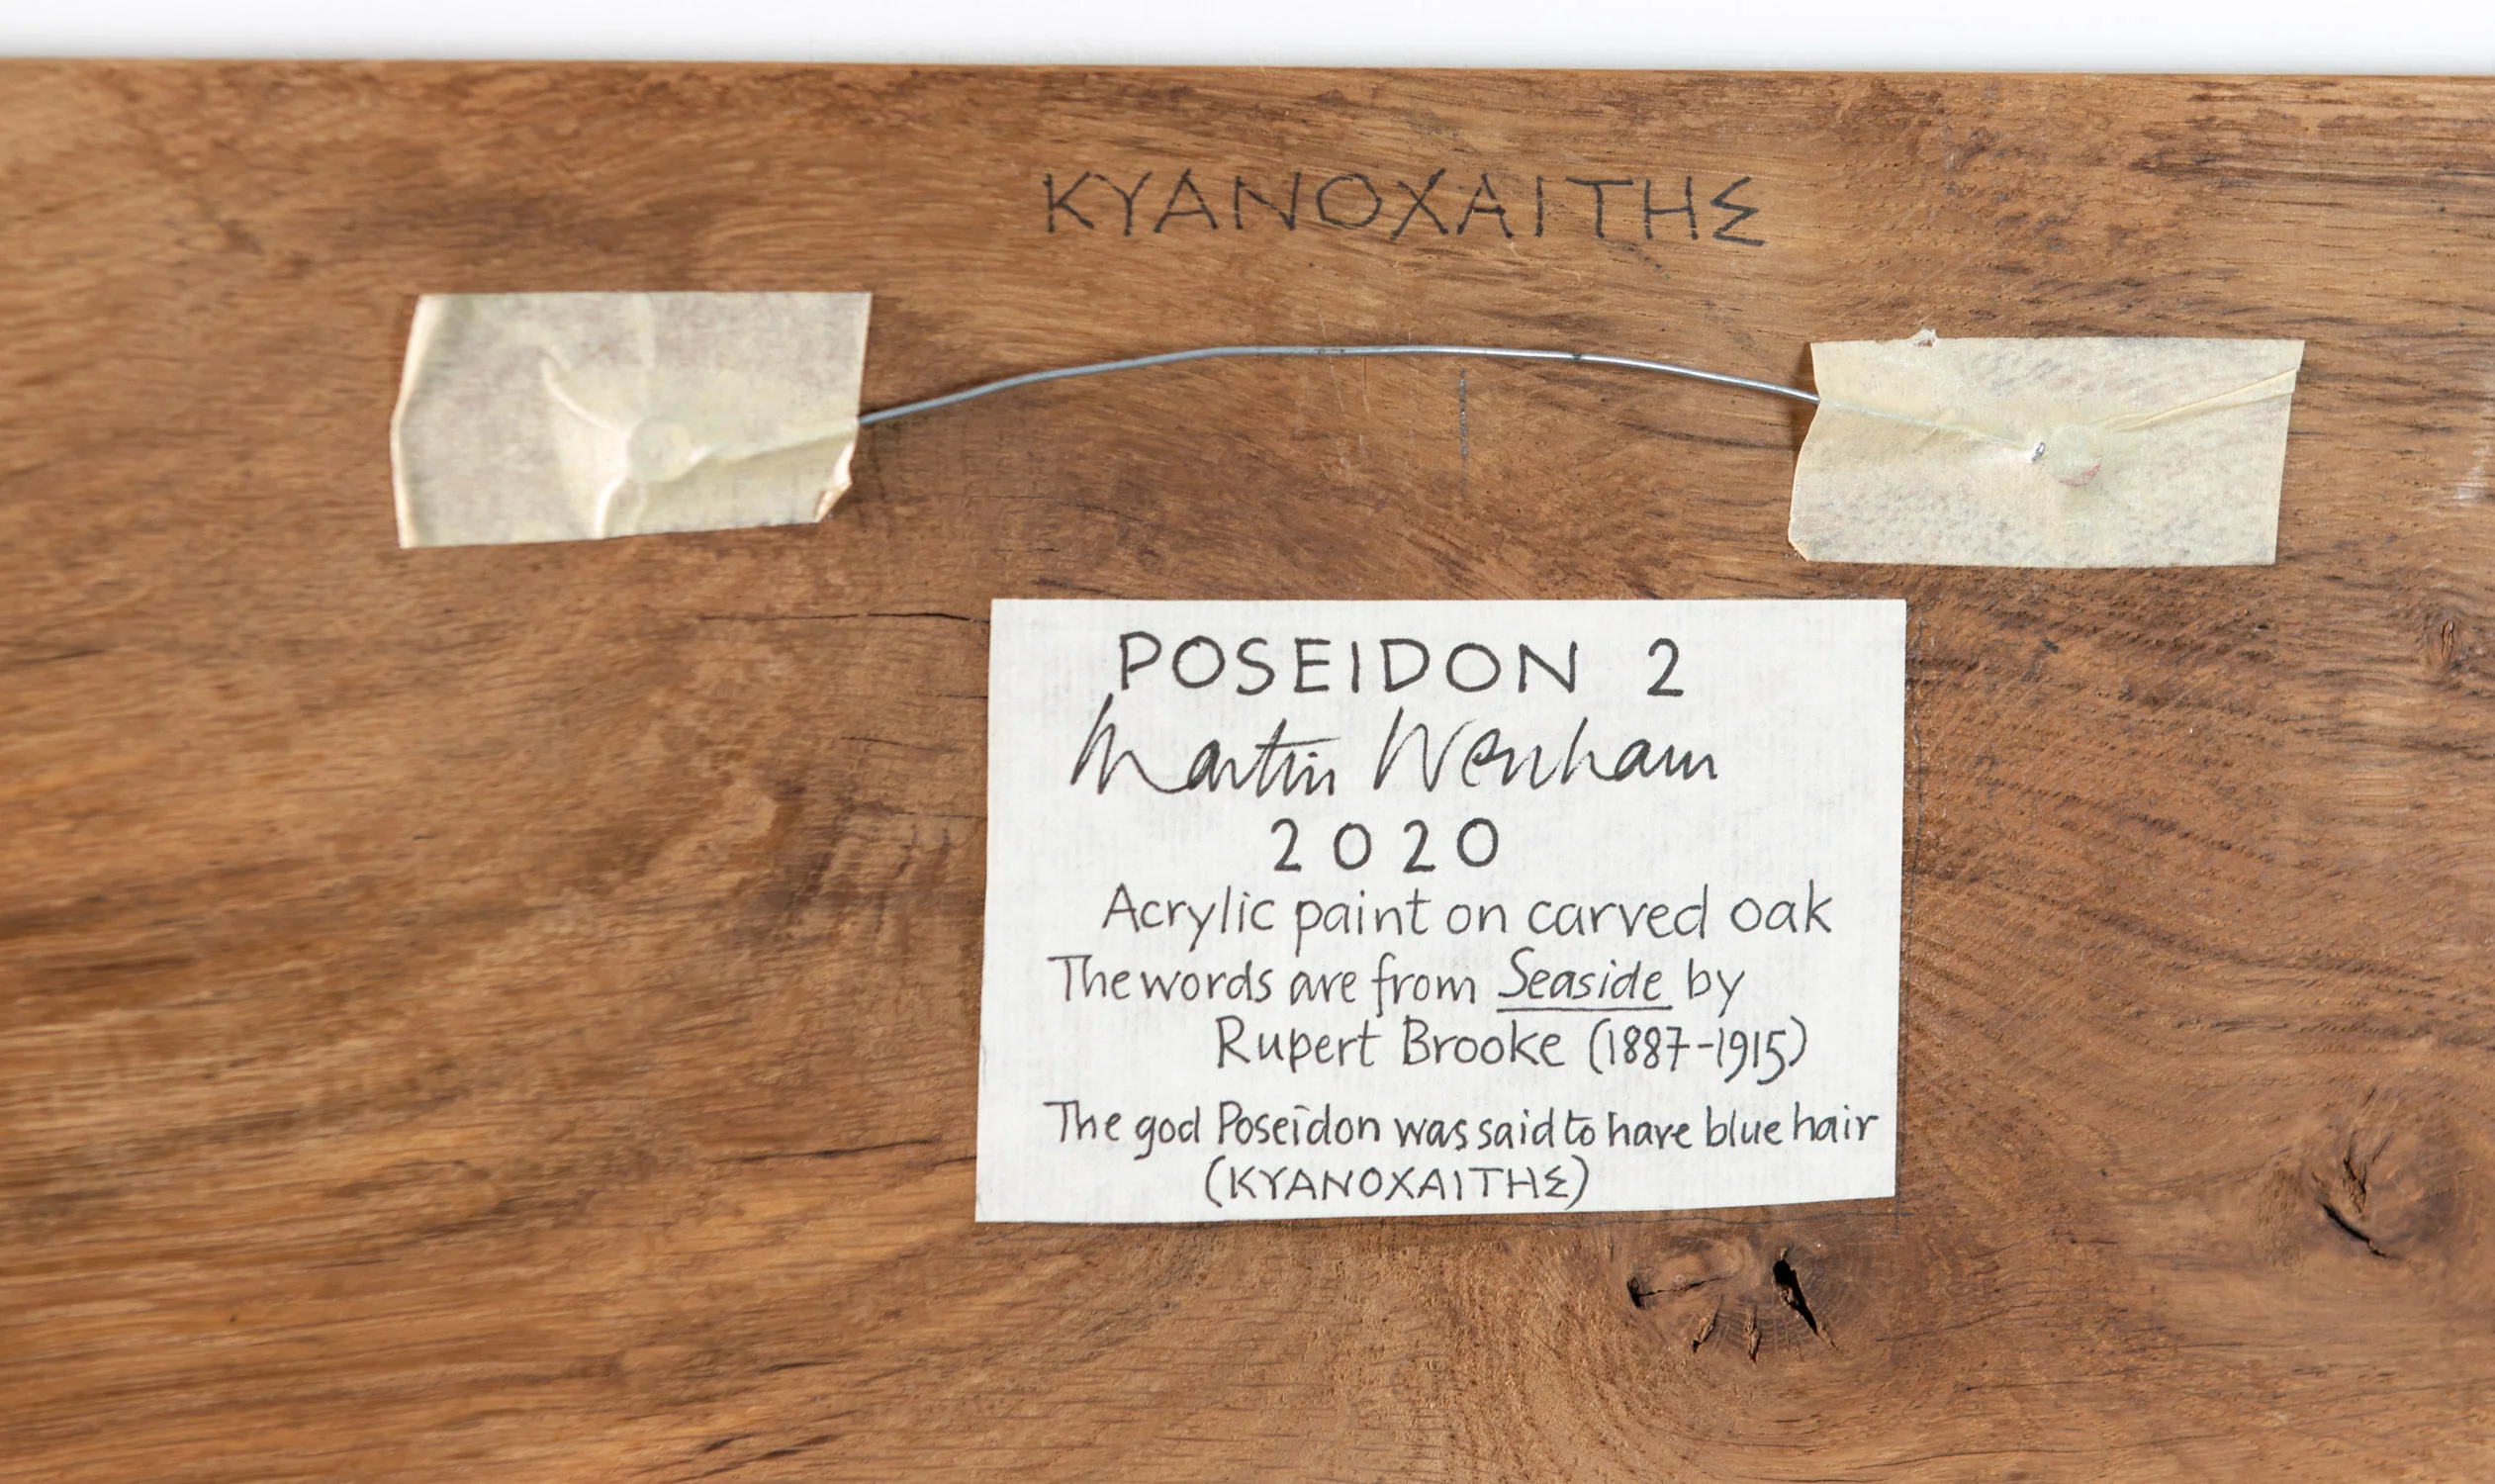 ΚΥΑΝΟΧΑΙΤΗΣ
POSEIDON 2
Martin Wenham
2020
Acrylic paint on carved oak
The words are from Seaside by
Rupert Brooke (1887-1915)
The god Poseidon was said to have blue hair
(ΚΥΑΝΟΧΑΙΤΗΣ)